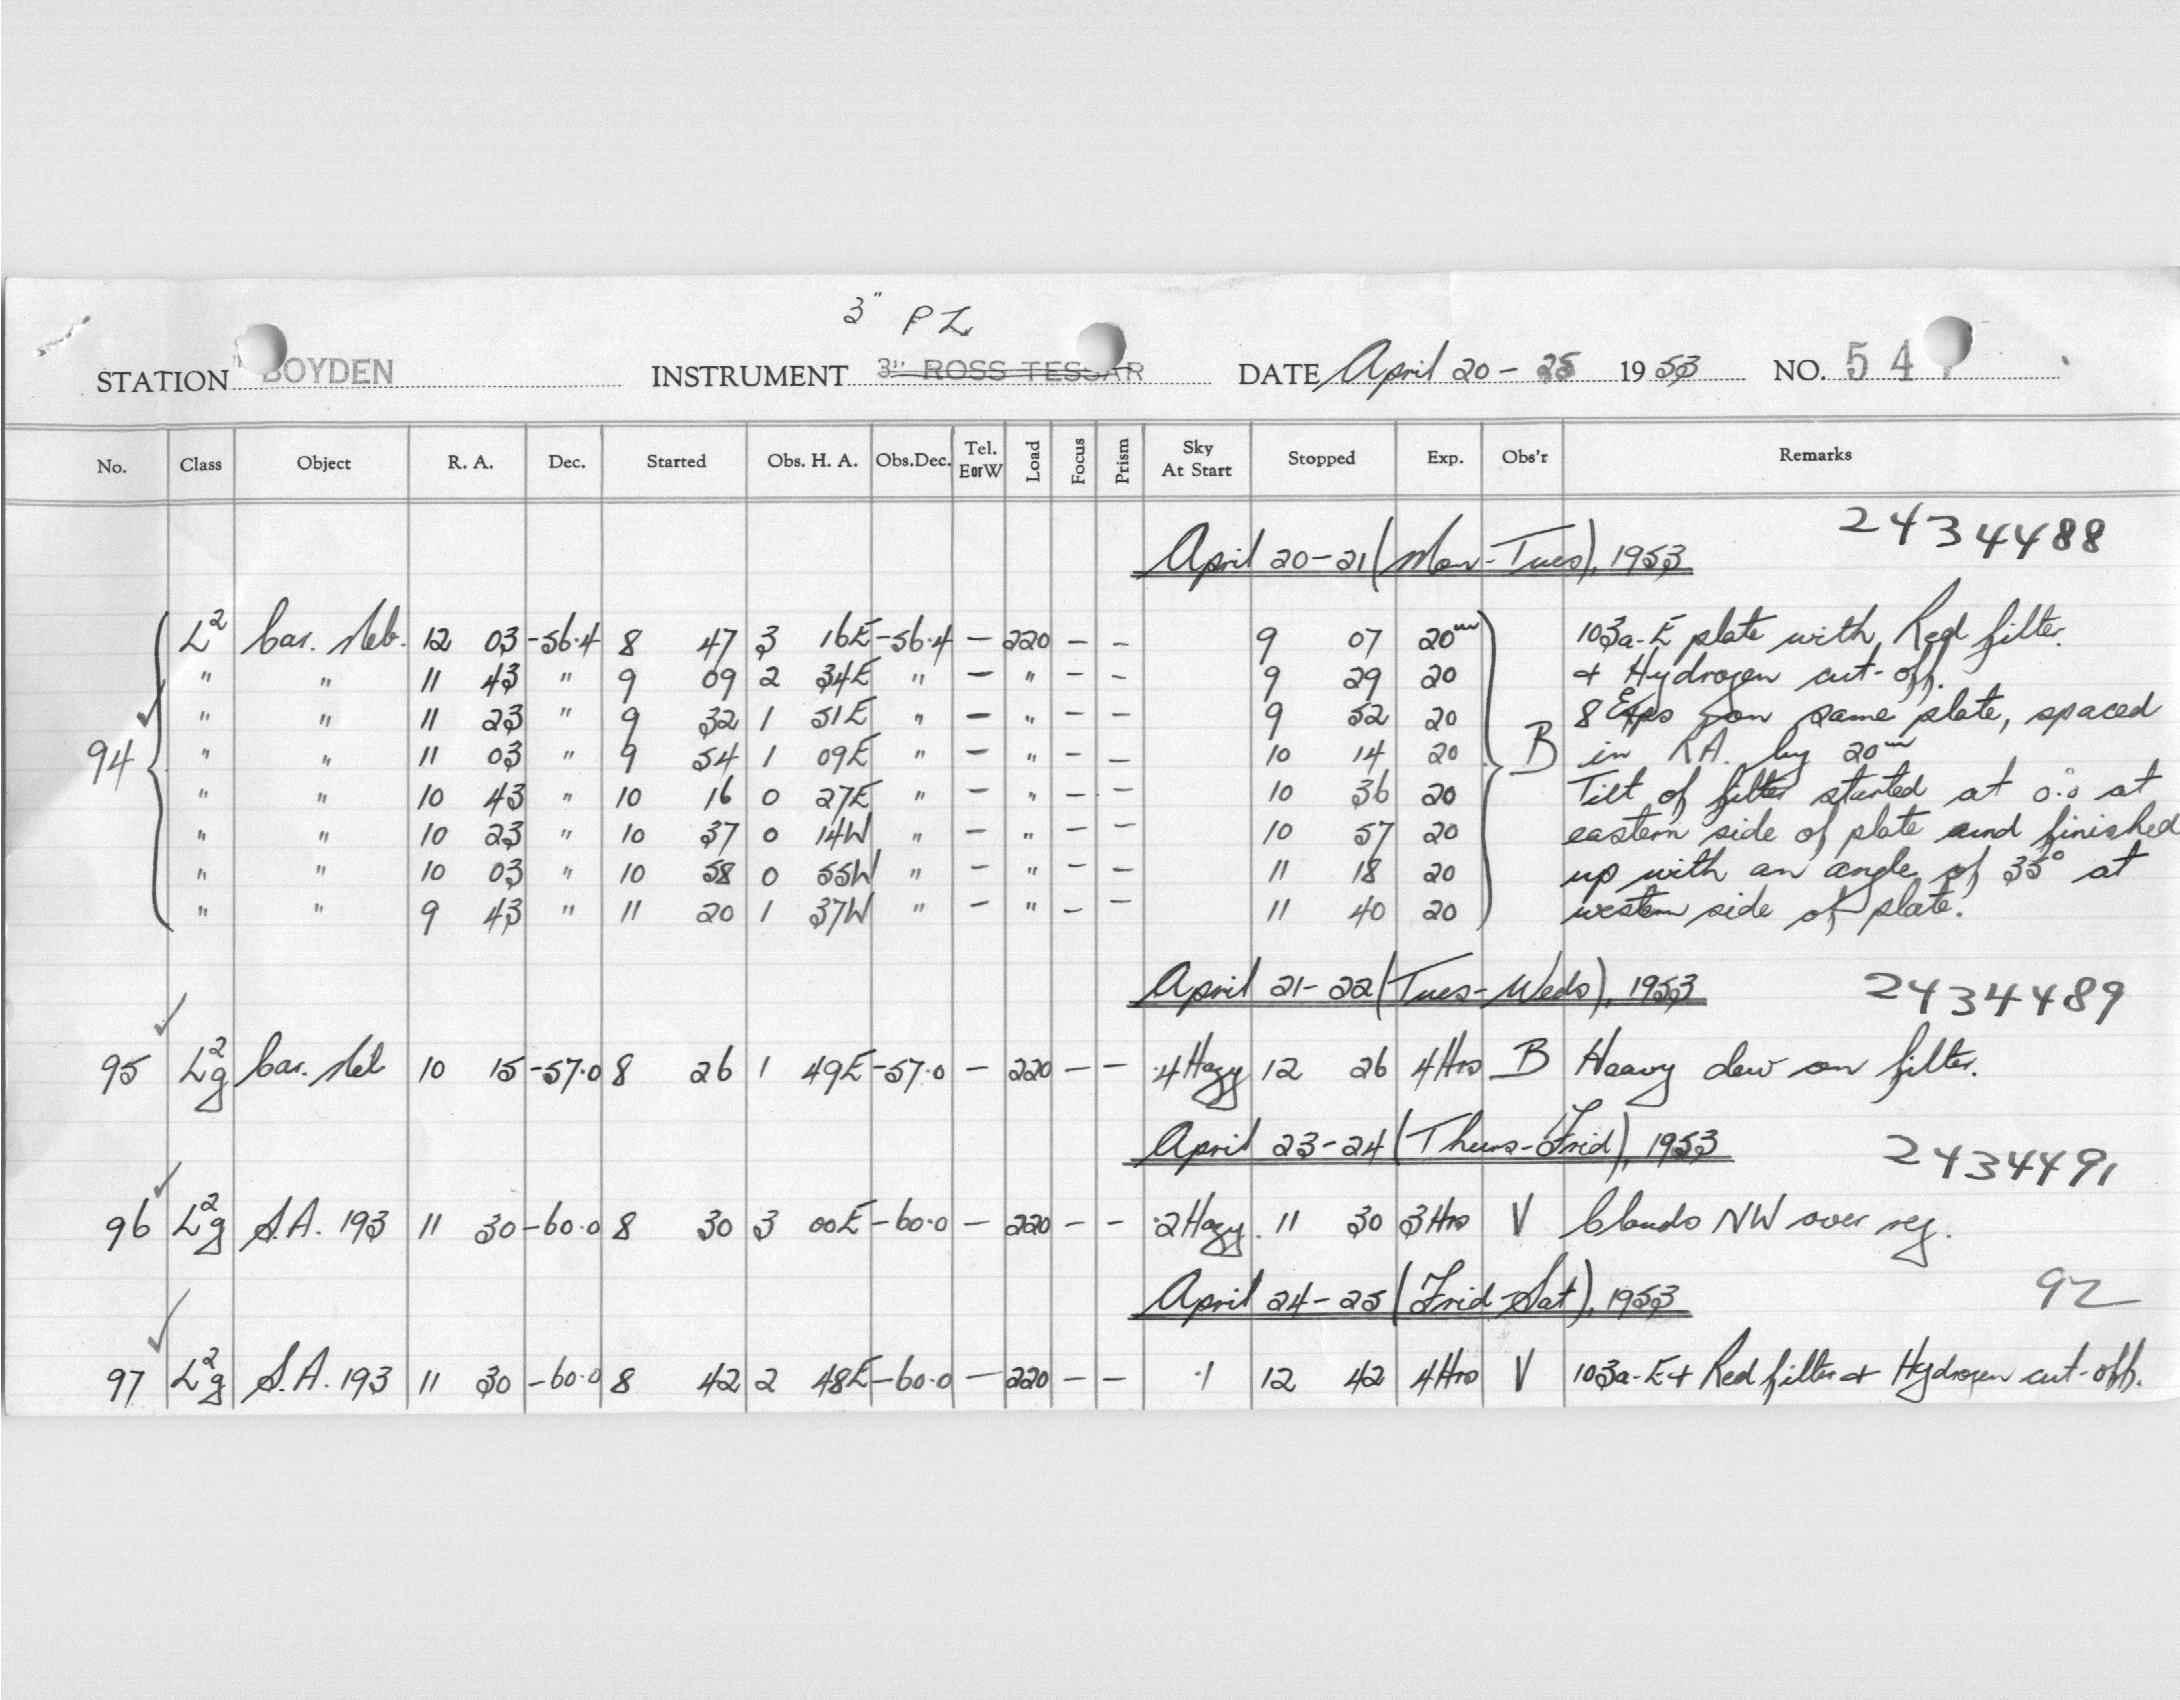 3" P Z
STATION BOYDEN INSTRUMENT 3" ROSS TESSAR DATE April 20 - 25 1953 NO. 54
No. Class Object R. A. Dec. Started Obs. H. A. Obs.Dec. Tel. E or W Load Focus Prism Sky At Start Stopped Exp. Obs'r Remarks
April 20-21 (Mon-Tues), 1953 2434488
L² Car. Neb. 12 03 -56.4 8 47 3 16E -56.4 — 220 — — 9 07 20m 103a-E plate with Red filter
" " 11 43 " 9 09 2 34E " — " — — 9 29 20 + Hydrogen cut-off.
" " 11 23 " 9 32 1 51E " — " — — 9 52 20 8 Exps on same plate, spaced
94 " " 11 03 " 9 54 1 09E " — " — — 10 14 20 B in RA. by 20m
" " 10 43 " 10 16 0 27E " — " — — 10 36 20 Tilt of filter started at 0.°0 at
" " 10 23 " 10 37 0 14W " — " — — 10 57 20 eastern side of plate and finished
" " 10 03 " 10 58 0 55W " — " — — 11 18 20 up with an angle of 35° at
" " 9 43 " 11 20 1 37W " — " — — 11 40 20 western side of plate.
April 21-22 (Tues-Weds), 1953 2434489
95 L²g Car. Neb 10 15 -57.0 8 26 1 49E -57.0 — 220 — — .4 Hazy 12 26 4Hrs B Heavy dew on filter.
April 23-24 (Thurs-Frid), 1953 2434491
96 L²g S.A. 193 11 30 -60.0 8 30 3 00E -60.0 — 220 — — .2 Hazy. 11 30 3Hrs V Clouds NW over reg.
April 24-25 (Frid-Sat), 1953 92
97 L²g S.A. 193 11 30 -60.0 8 42 2 48E -60.0 — 220 — — .1 12 42 4Hrs V 103a-E + Red filter + Hydrogen cut-off.